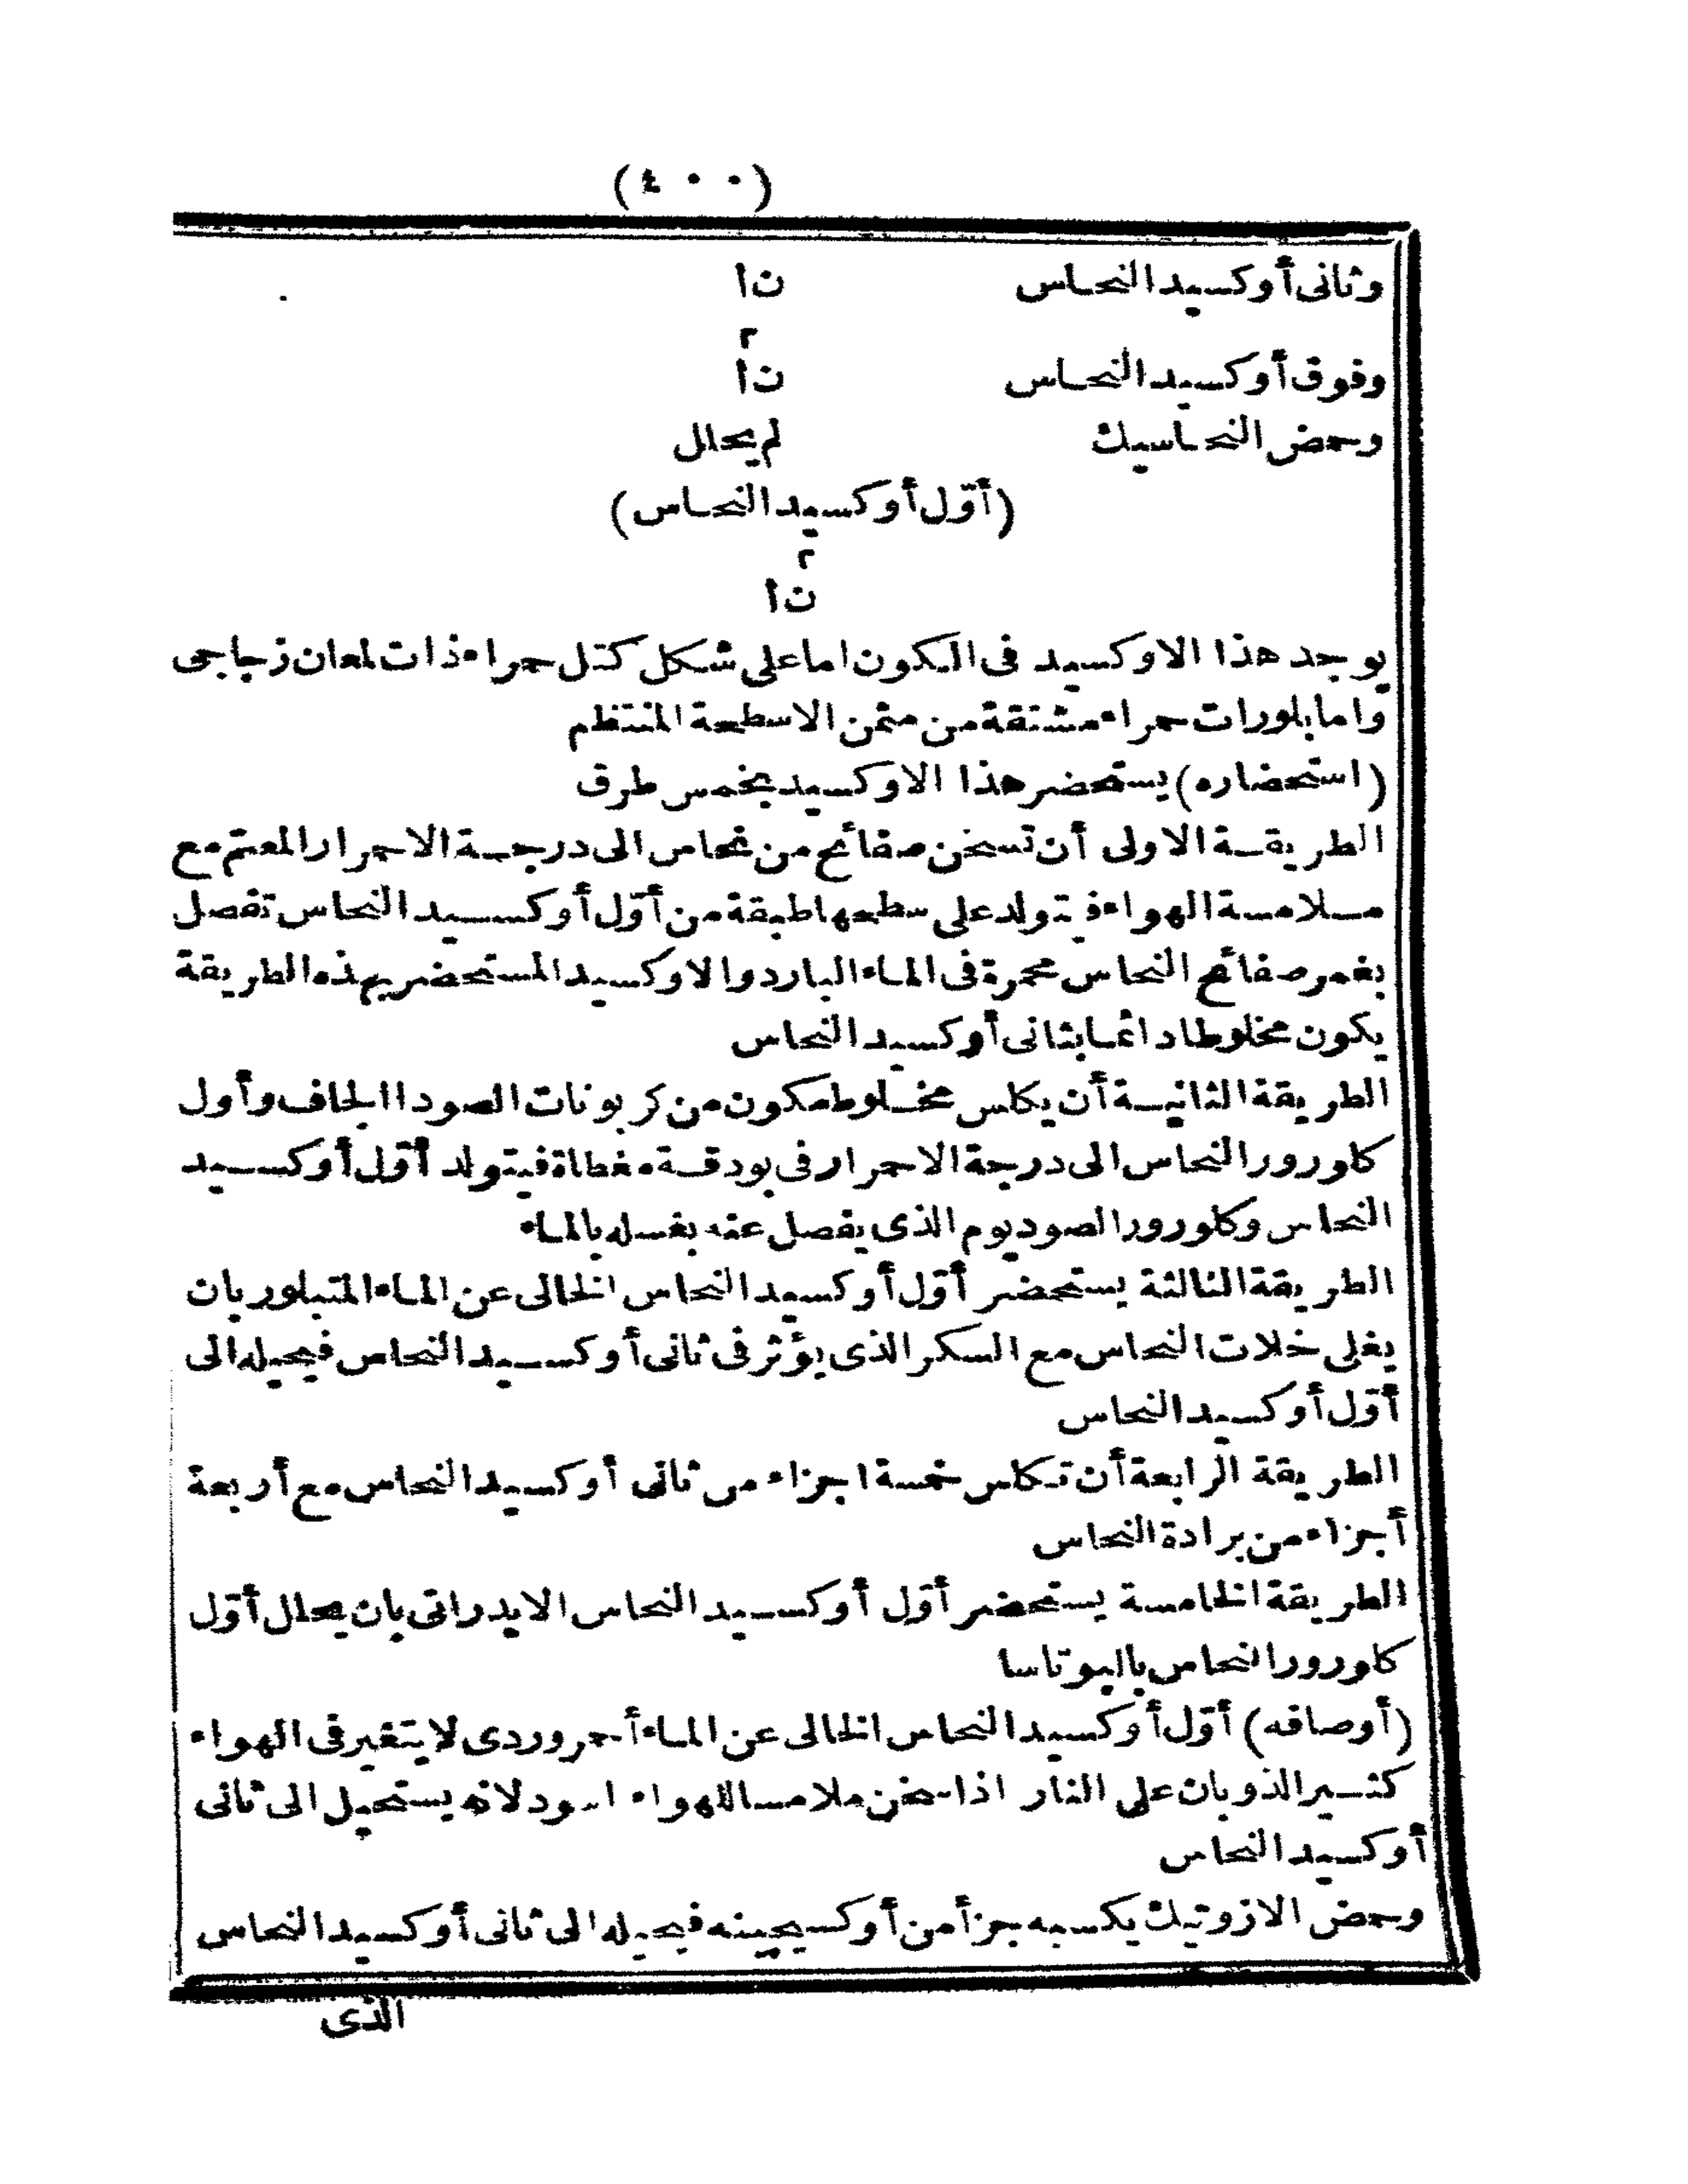 (٤٠٠)
وثانى أوكسيد النحاس ن ا
٢
وفوق أوكسيد النحاس ن ا
وحمض النحاسيك لم يحلل
(أوّل أوكسيد النحاس)
٢
ن ا
يوجد هذا الاوكسيد فى الكون اما على شكل كتل حمراء ذات لمعان زجاجى
واما بلورات حمراء مشتقة من مثمن الاسطحة المنتظم
(استحضاره) يستحضر هذا الاوكسيد بخمس طرق
الطريقة الاولى أن تسخن صفائح من نحاس الى درجة الاحمرار المعتم مع
ملامسة الهواء فيتولد على سطحها طبقة من أوّل أوكسيد النحاس تفصل
بغمر صفائح النحاس محمرة فى الماء البارد والاوكسيد المستحضر بهذه الطريقة
يكون مخلوطا دائما بثانى أوكسيد النحاس
الطريقة الثانية أن يكلس مخلوط مكون من كربونات الصودا الجاف وأول
كلورور النحاس الى درجة الاحمرار فى بودقة مغطاة فيتولد أوّل أوكسيد
النحاس وكلورور الصوديوم الذى يفصل عنه بغسله بالماء
الطريقة الثالثة يستحضر أوّل أوكسيد النحاس الخالى عن الماء المتبلور بان
يغلى خلات النحاس مع السكر الذى يؤثر فى ثانى أوكسيد النحاس فيحيله الى
أوّل أوكسيد النحاس
الطريقة الرابعة أن تكلس خمسة اجزاء من ثانى أوكسيد النحاس مع أربعة
أجزاء من برادة النحاس
الطريقة الخامسة يستحضر أوّل أوكسيد النحاس الايدراتى بان يحلل أوّل
كلورور النحاس بالبوتاسا
(أوصافه) أوّل أوكسيد النحاس الخالى عن الماء أحمر وردى لا يتغير فى الهواء
كثير الذوبان على النار اذا سخن ملامسا للهواء اسود لانه يستحيل الى ثانى
أوكسيد النحاس
وحمض الازوتيك يكسبه جزأ من أوكسيجينه فيحيله الى ثانى أوكسيد النحاس
الذى